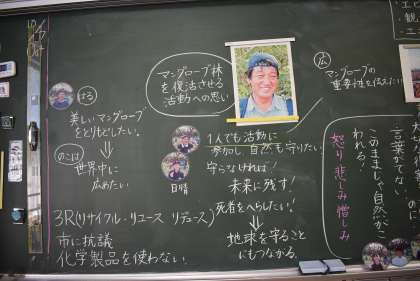 はる
美しいマングローブ
をとりもどしたい。
のこは
世界中に
広めたい
3R(リサイクル・リユース リデュース)
市に抗議
化学製品を使わない
マングローブ林
を復活させる
活動への思い
1人でも活動に
参加し、自然も守りたい。
守らなければ!
日晴
未来に残す!
死者をへらしたい!
地球を守ること
にもつながる。
広
マングローブの
重要性を伝えたい
言葉がでない。
このままじゃ自然がこ
われる。
怒り 悲しみ 憎しみ